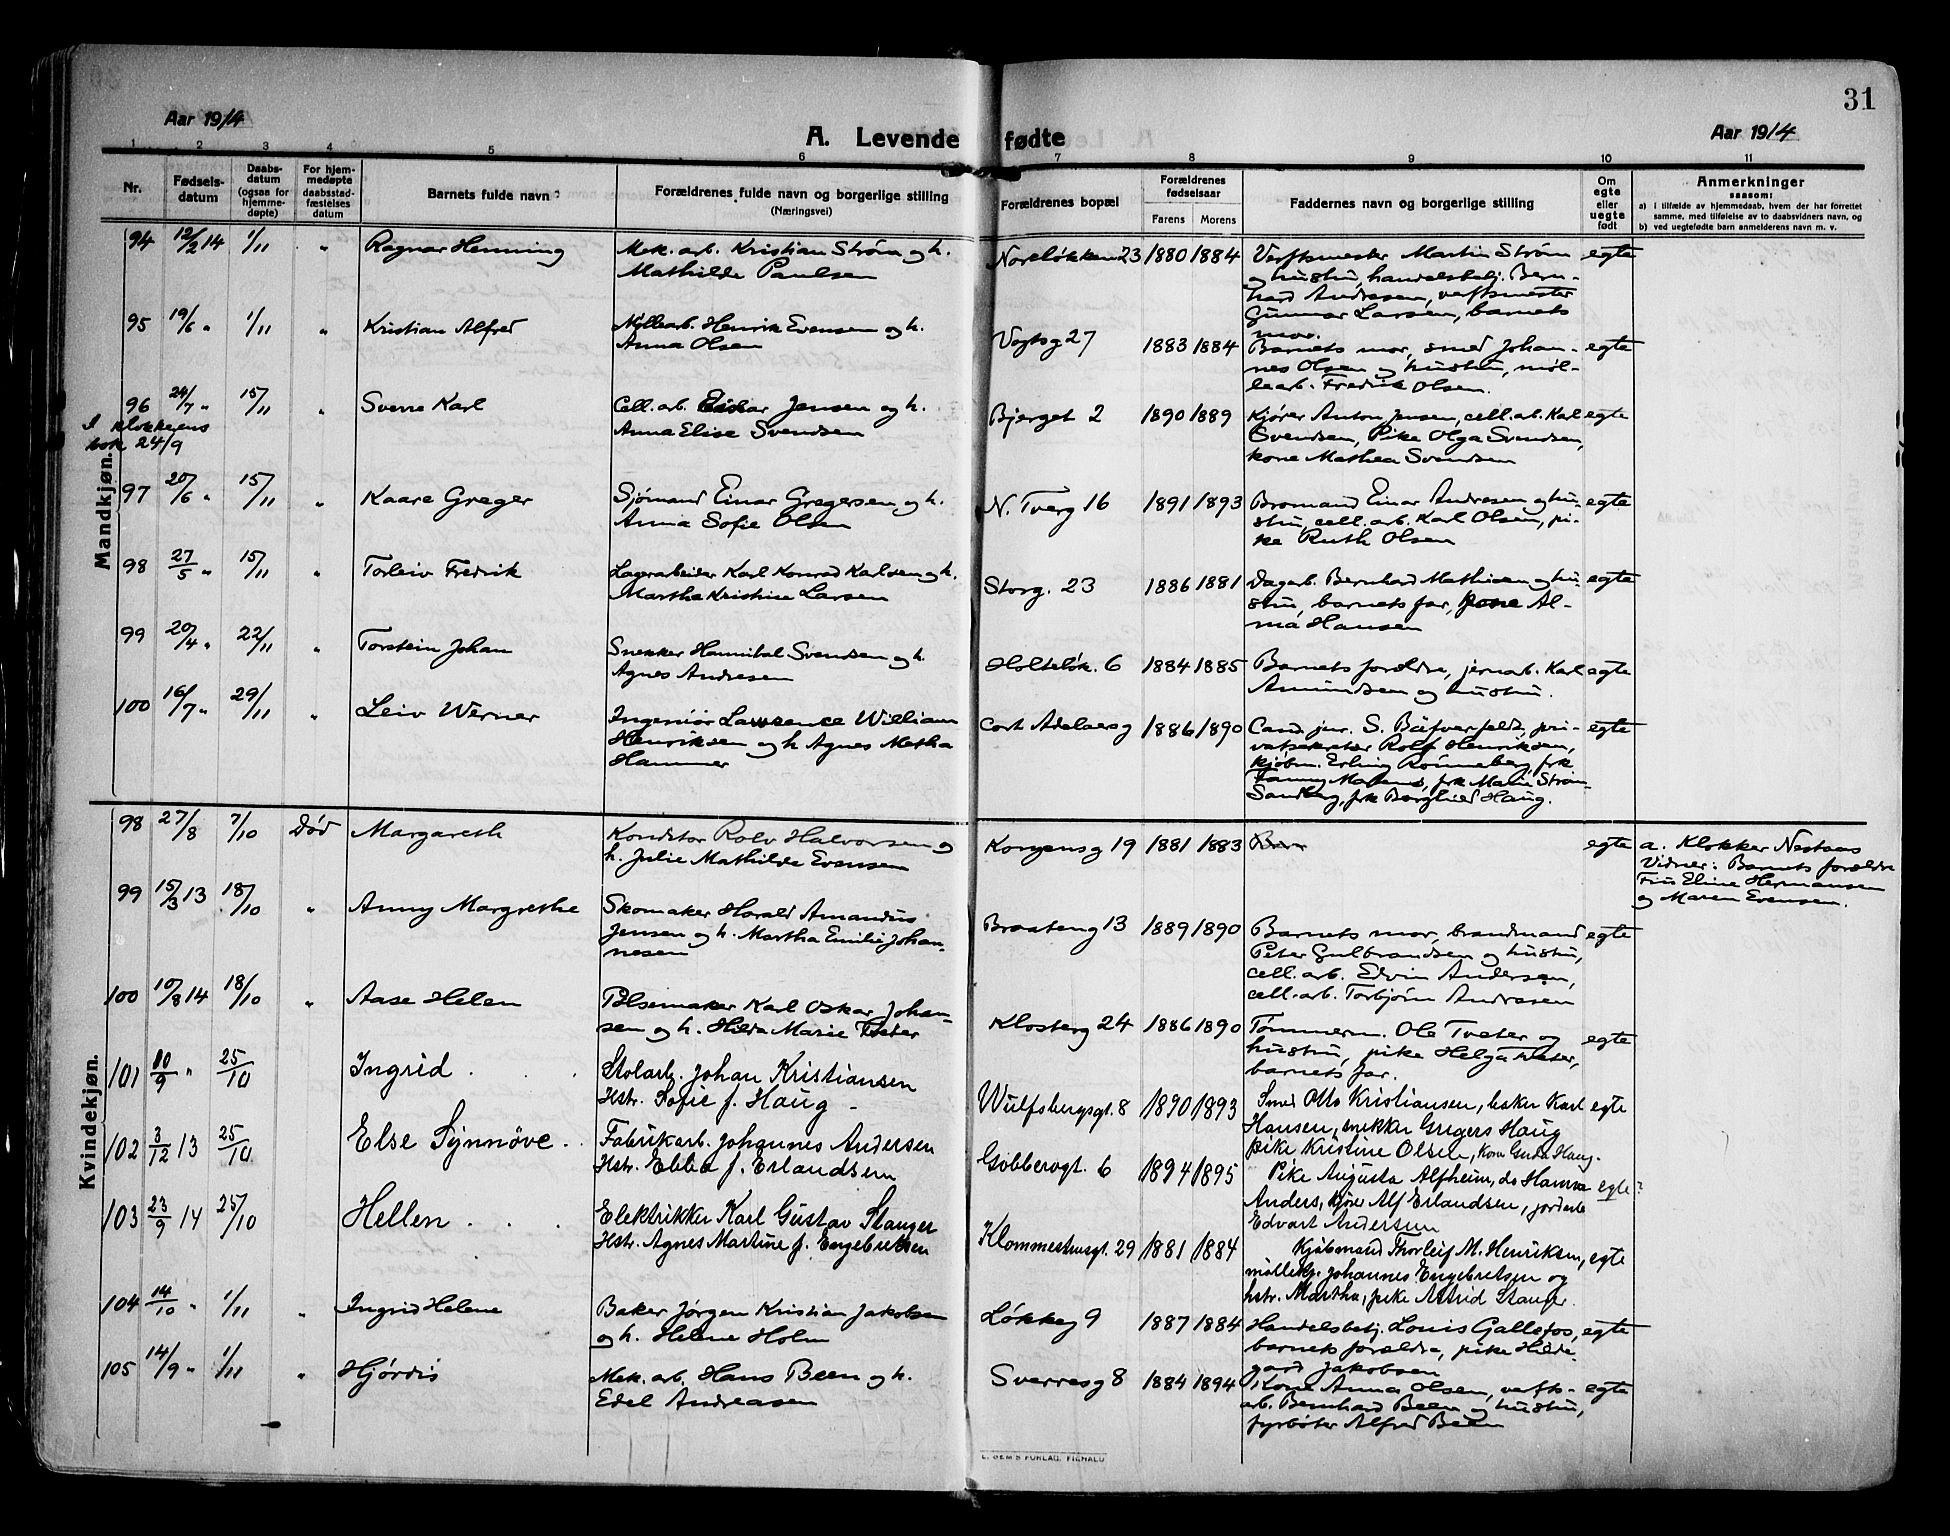 31
Aar 1914
A. Levende fødte
Aar 1914
1 2 3 4 5 6 7 8 9 10 11
Nr.
Fødsels-
datum
Daabs-
datum
(ogsaa for
hjemme-
døpte)
For hjem-
medøpte
daabsstad-
fæstelses
datum
Barnets fulde navn
Forældrenes fulde navn og borgerlige stilling
(Næringsvei)
Forældrenes bopæl
Forældrenes
fødselsaar
Farens Morens
Faddernes navn og borgerlige stilling
Om
egte
eller
uegte
født
Anmerkninger
saasom:
a) i tilfælde av hjemmedaab, hvem der har forrettet
samme, med tilføielse av to daabsvidners navn, og
b) ved uegtefødte barn anmelderens navn m. v.
Mandkjøn.
94 12/2 14 1/11 " Ragnar Henning
Mek. arb. Kristian Strøm og h.
Mathilde Paulsen
Noreløkken 23 1880 1884
Verftsmester Martin Strøm
og hustru, handelsbetj. Bern-
hard Andresen, verftsmester
Gunnar Larsen, barnets
mor.
egte
95 19/6 " 1/11 " Kristian Alfred
Møllearb. Henrik Evensen og h.
Anna Olsen
Vogtsg 27 1883 1884
Barnets mor, smed Johan-
nes Olsen og hustru, møl-
learb. Fredrik Olsen.
egte
96 24/7 " 15/11 " Sverre Karl
I klokkerens
bok 24/9
Cell. arb. Einar Jensen og h.
Anna Elise Svendsen
Bjerget 2 1890 1889
Kjører Anton Jensen, cell. arb. Karl
Svendsen, Pike Olga Svendsen,
kone Mathea Svendsen
egte
97 20/6 " 15/11 " Kaare Greger
Sjømand Einar Gregersen og h.
Anna Sofie Olsen
N. Tverg 16 1891 1893
Bromand Einar Andresen og hu-
stru, cell. arb. Karl Olsen, pi-
ke Ruth Olsen
egte
98 27/5 " 15/11 " Torleiv Fredrik
Lagerarbeider Karl Konrad Karlsen og h.
Martha Kristine Larsen
Storg. 23 1886 1881
Dagarb. Bernhard Mathisen og hu-
stru, barnets far, kone Al-
ma Hansen
egte
99 20/4 " 22/11 " Torstein Johan
Snekker Hannibal Svendsen og h.
Agnes Andresen
Holteløk. 6 1884 1885
Barnets forældre, jernarb. Karl
Amundsen og hustru.
egte
100 16/7 " 29/11 " Leiv Werner
Ingeniør Lawrence William
Henriksen og h Agnes Metha
Hammer
Cort Adelaersg 1886 1890
Cand jur. S. Bûfverfeldt, pri-
vatsekretær Rolf Henriksen,
kjøbm. Erling Rønneberg, frk
Fanny, frk Marie Strøm
Sandberg, frk Borghild Haug.
egte
Kvindekjøn.
98 27/8 7/10 Død Margareth
Konditor Rolv Halvorsen og
h. Julie Mathilde Evensen
Kongensg 19 1881 1883
Bar
egte
a. Klokker Nestaas
Vidner: Barnets forældre
Fru Eline Hermansen
og Maren Evensen.
99 15/3 13 18/10 " Anny Margrethe
Skomaker Harald Amandus
Jensen og h. Martha Emilie Johan-
nesen
Braateng 13 1889 1890
Barnets mor, brandmand
Peter Gulbrandsen og hustru,
cell. arb. Edvin Andersen,
cell. arb. Torbjørn Andresen
egte
100 10/8 14 18/10 " Aase Helen
Pølsemaker Karl Oskar Johan-
sen og h. Hilda Marie Tveter
Klosterg 24 1886 1890
Tømmerm. Ole Tveter og
hustru, pike Helga Tveter,
barnets far.
egte
101 10/9 " 25/10 Ingrid
Stolarb. Johan Kristiansen
Hstr. Sofie f. Haug
Wulfsbergsgt. 8 1890 1893
Smed Otto Kristiansen, baker Karl
Hansen, snekker Gregers Haug
pike Kristine Olsen, Kone Gerda Haug.
egte
102 3/12 13 25/10 Else Synnöve
Fabrikarb. Johannes Andersen
Hstr. Ebba f. Erlandsen
Gobberogt. 6 1894 1895
Pike Augusta Alfheim, do Hanna
Anders, kjør Alf Erlandsen, jordarb
Edvart Andersen
egte?
103 23/9 14 25/10 Hellen
Elektrikker Karl Gustav Stanger
Hstr. Agnes Martine f. Engebretsen
Klommestensgt. 29 1881 1884
Kjöbmand Thorleif M. Henriksen,
möllekj. Johannes Engebretsen og
hstr. Martha, pike Astrid Stanger.
egte
104 14/10 " 1/11 " Ingrid Helene
Baker Jørgen Kristian Jakobsen
og h. Helene Holm
Løkkeg 9 1887 1884
Handelsbetj. Louis Gallefos,
barnets forældre, pike Hilde-
gard Jakobsen
egte
105 14/9 " 1/11 " Hjørdis
Mek. arb. Hans Been og h.
Edel Andreasen
Sverresg 8 1884 1894
Kone Anna Olsen, verfts-
arb. Bernhard Been og hustru,
fyrbøter Alfred Been
egte
E. SEM'S FORLAG, F.HALD